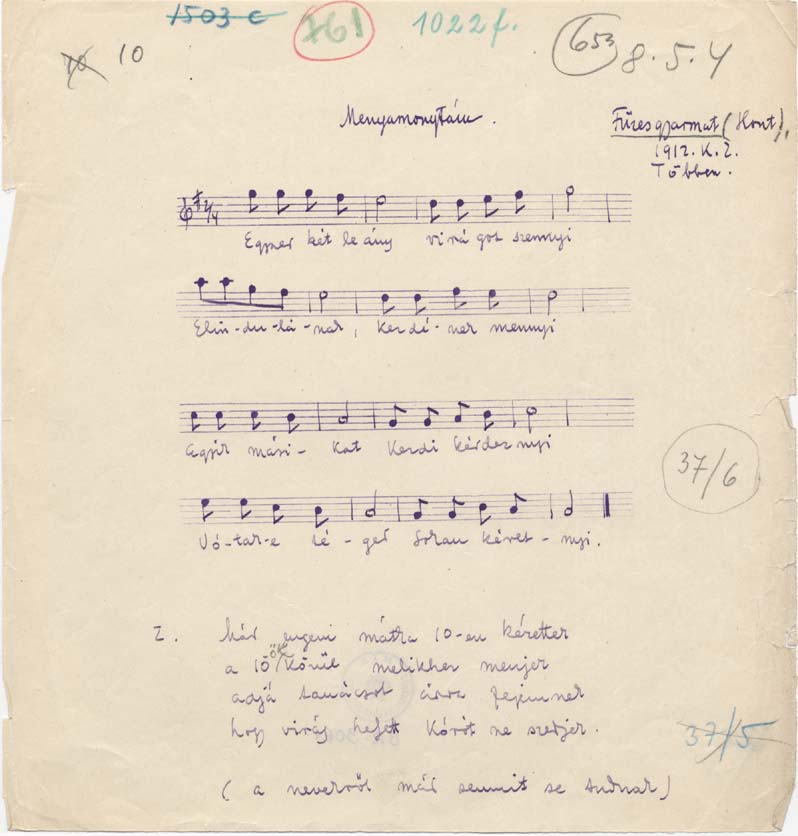 1503 c 761 1022 f. 653 8.5.4
10 10
Menyamonytáw.
Füzesgyarmat (Hont),
1912. K. Z.
Többen.
2/4
Egynek két leány virágot szennyi
Elin-du-lá-nak, kerdé-nek mennyi
Egyik mási-kat kerdi kérdeznyi
Vó-tak-e té-ged sokan kéret-nyi.
37/6
2. Már engem mátka 10-en kérettek
a 10 ők kőnűl melikhez menjek
adjá tanácsot árva fejemnek
hogy virág helett kórót ne szedjek.
37/5
(a nevekről már semmit se tudnak)